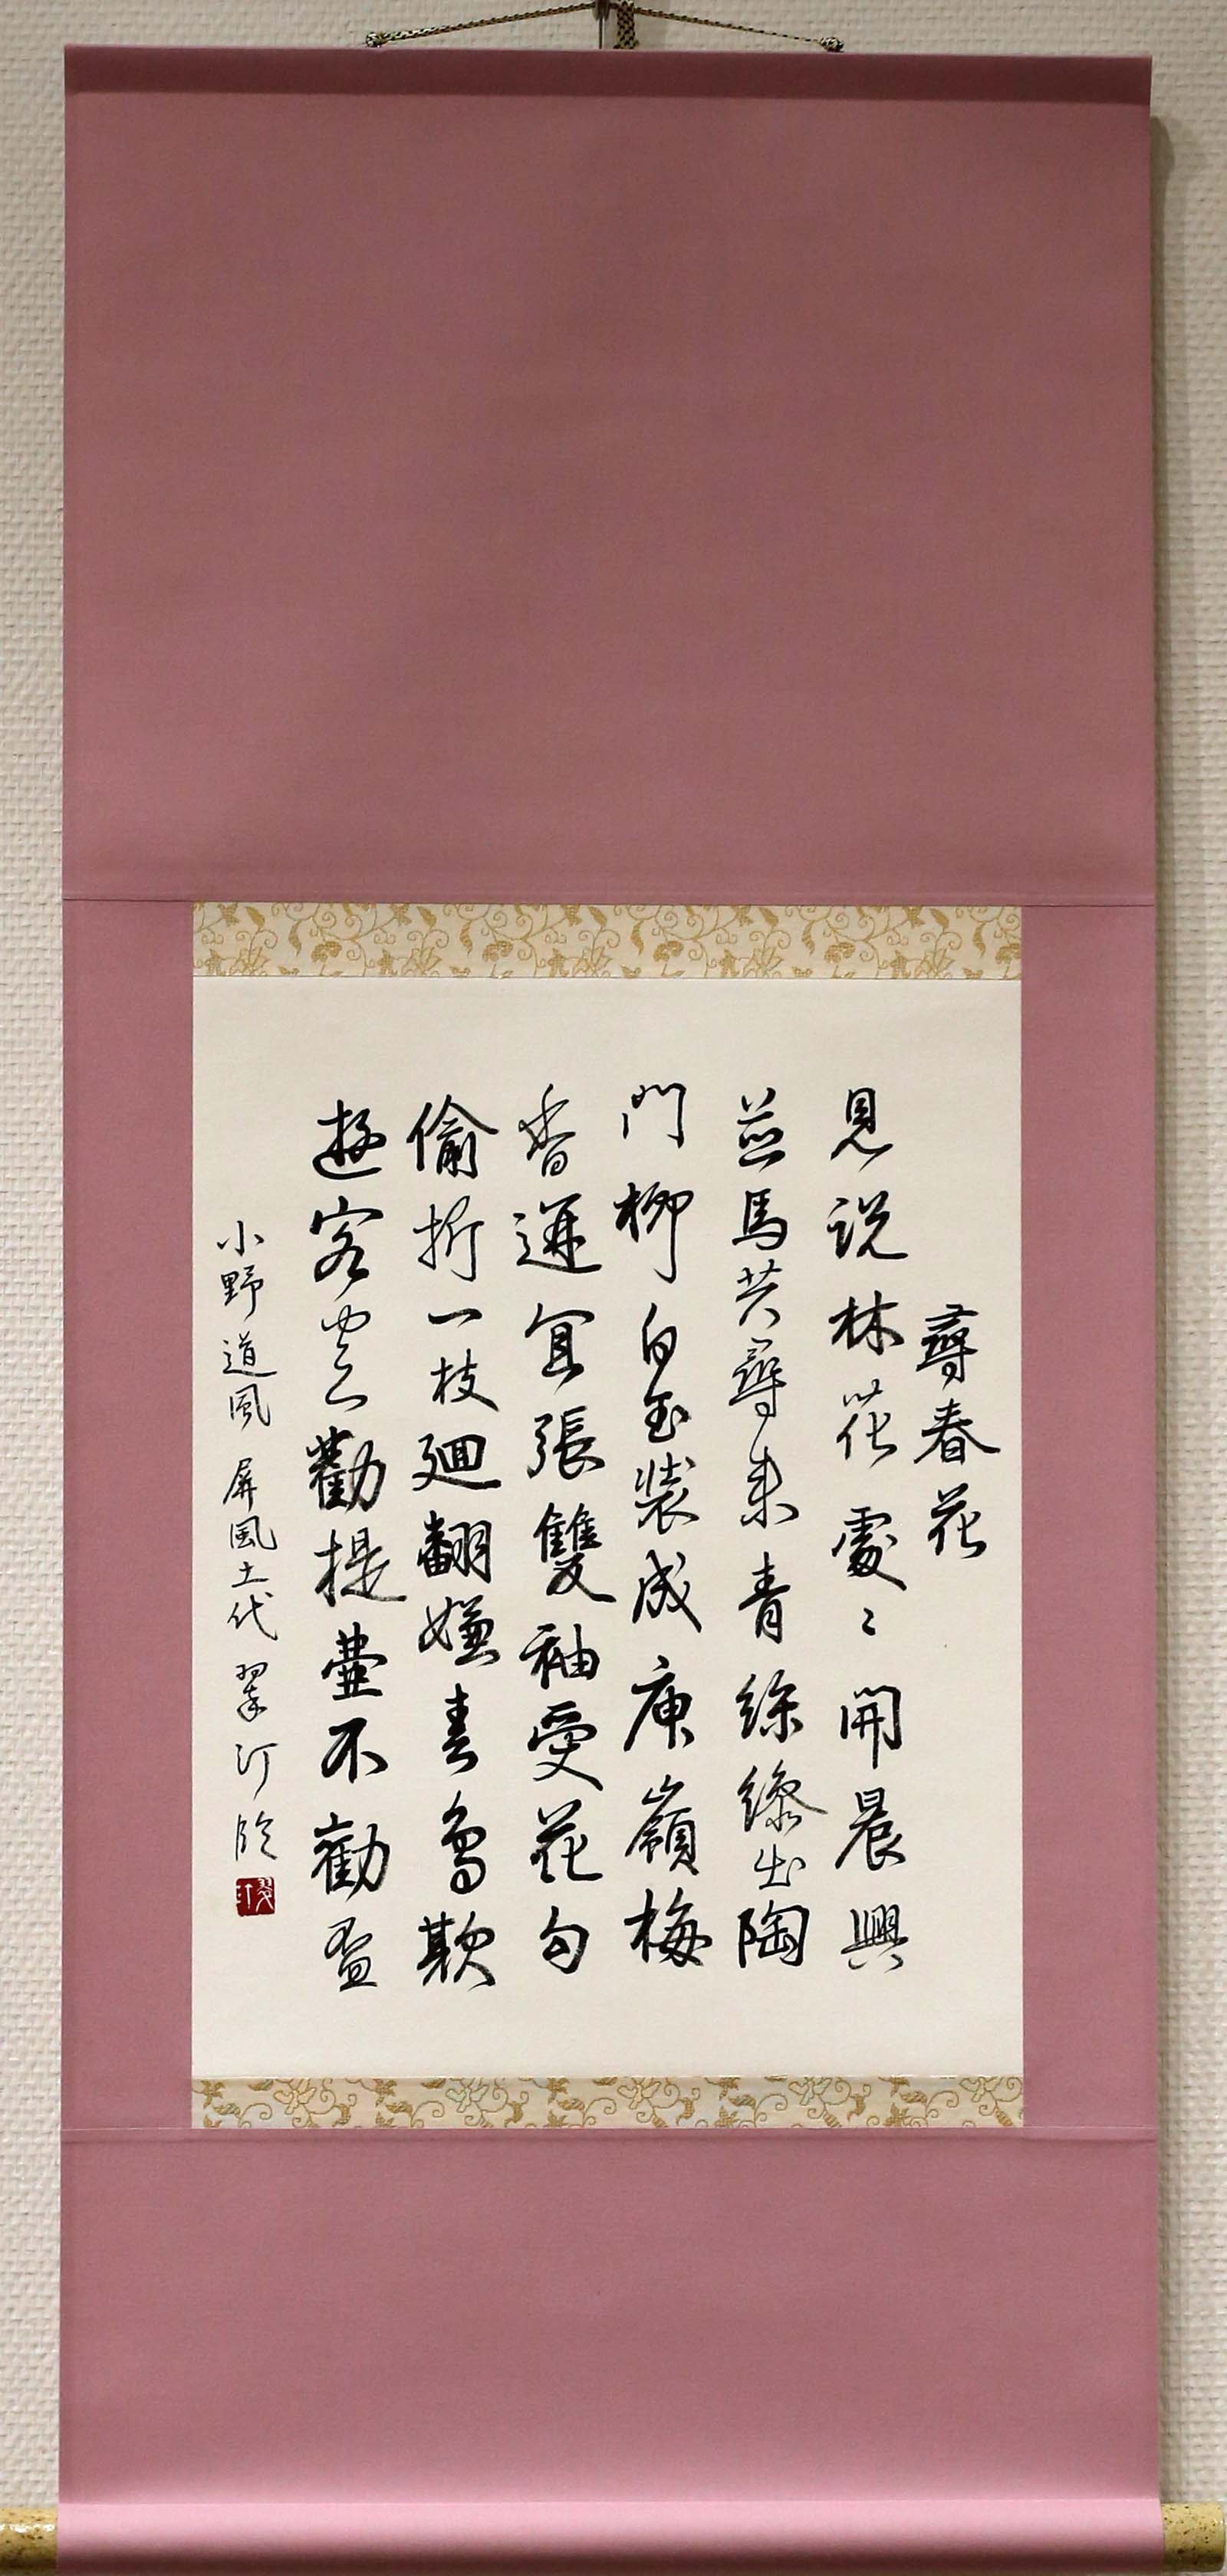 尋春花
見説林花處〻開晨興
並馬共尋来青絲繰出陶
門柳白玉装成庾嶺梅
香逕宜張雙袖受花勻
偸折一枝廻翻嫌春鳥欺
遊客空勸提壷不勸盃
小野道風 屏風土代 翠汀臨
翠汀